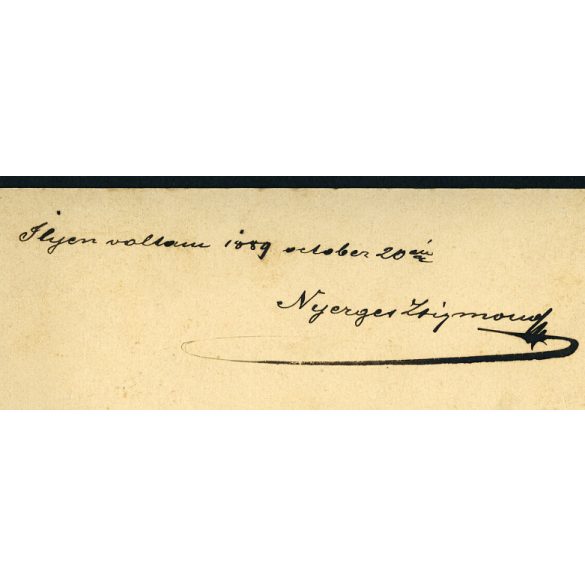 Ilyen voltam 1889 october 20án
Nyerges Zsigmond